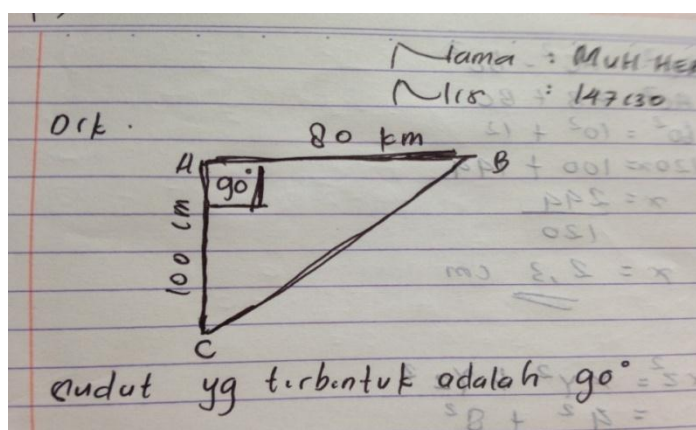 Nama : MUH HE
NIS : 147130
Dik.
80 km
A
B
90°
100 cm
C
Sudut yg terbentuk adalah 90°